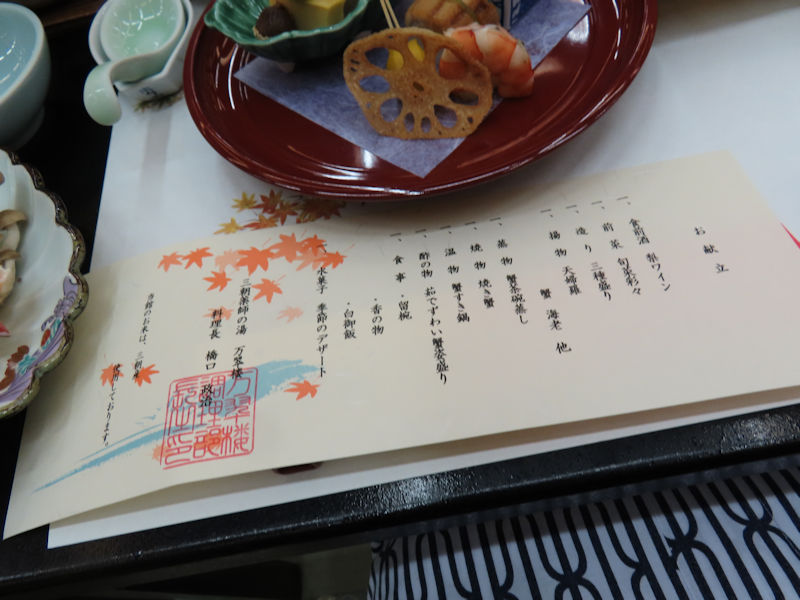 お献立
一、食前酒 梨ワイン
一、前菜 旬菜彩々
一、造り 三種盛り
一、揚物 天婦羅
蟹 海老 他
一、蒸物 蟹茶碗蒸し
一、焼物 焼き蟹
一、温物 蟹すき鍋
一、酢の物 茹でずわい蟹姿盛り
一、食事 ・留椀
・香の物
・白御飯
、水菓子 季節のデザート
三朝薬師の湯 万翠楼
料理長 橋口 政治
当館のお米は、三朝産
使用しております。
万翠楼
調理部
長之印